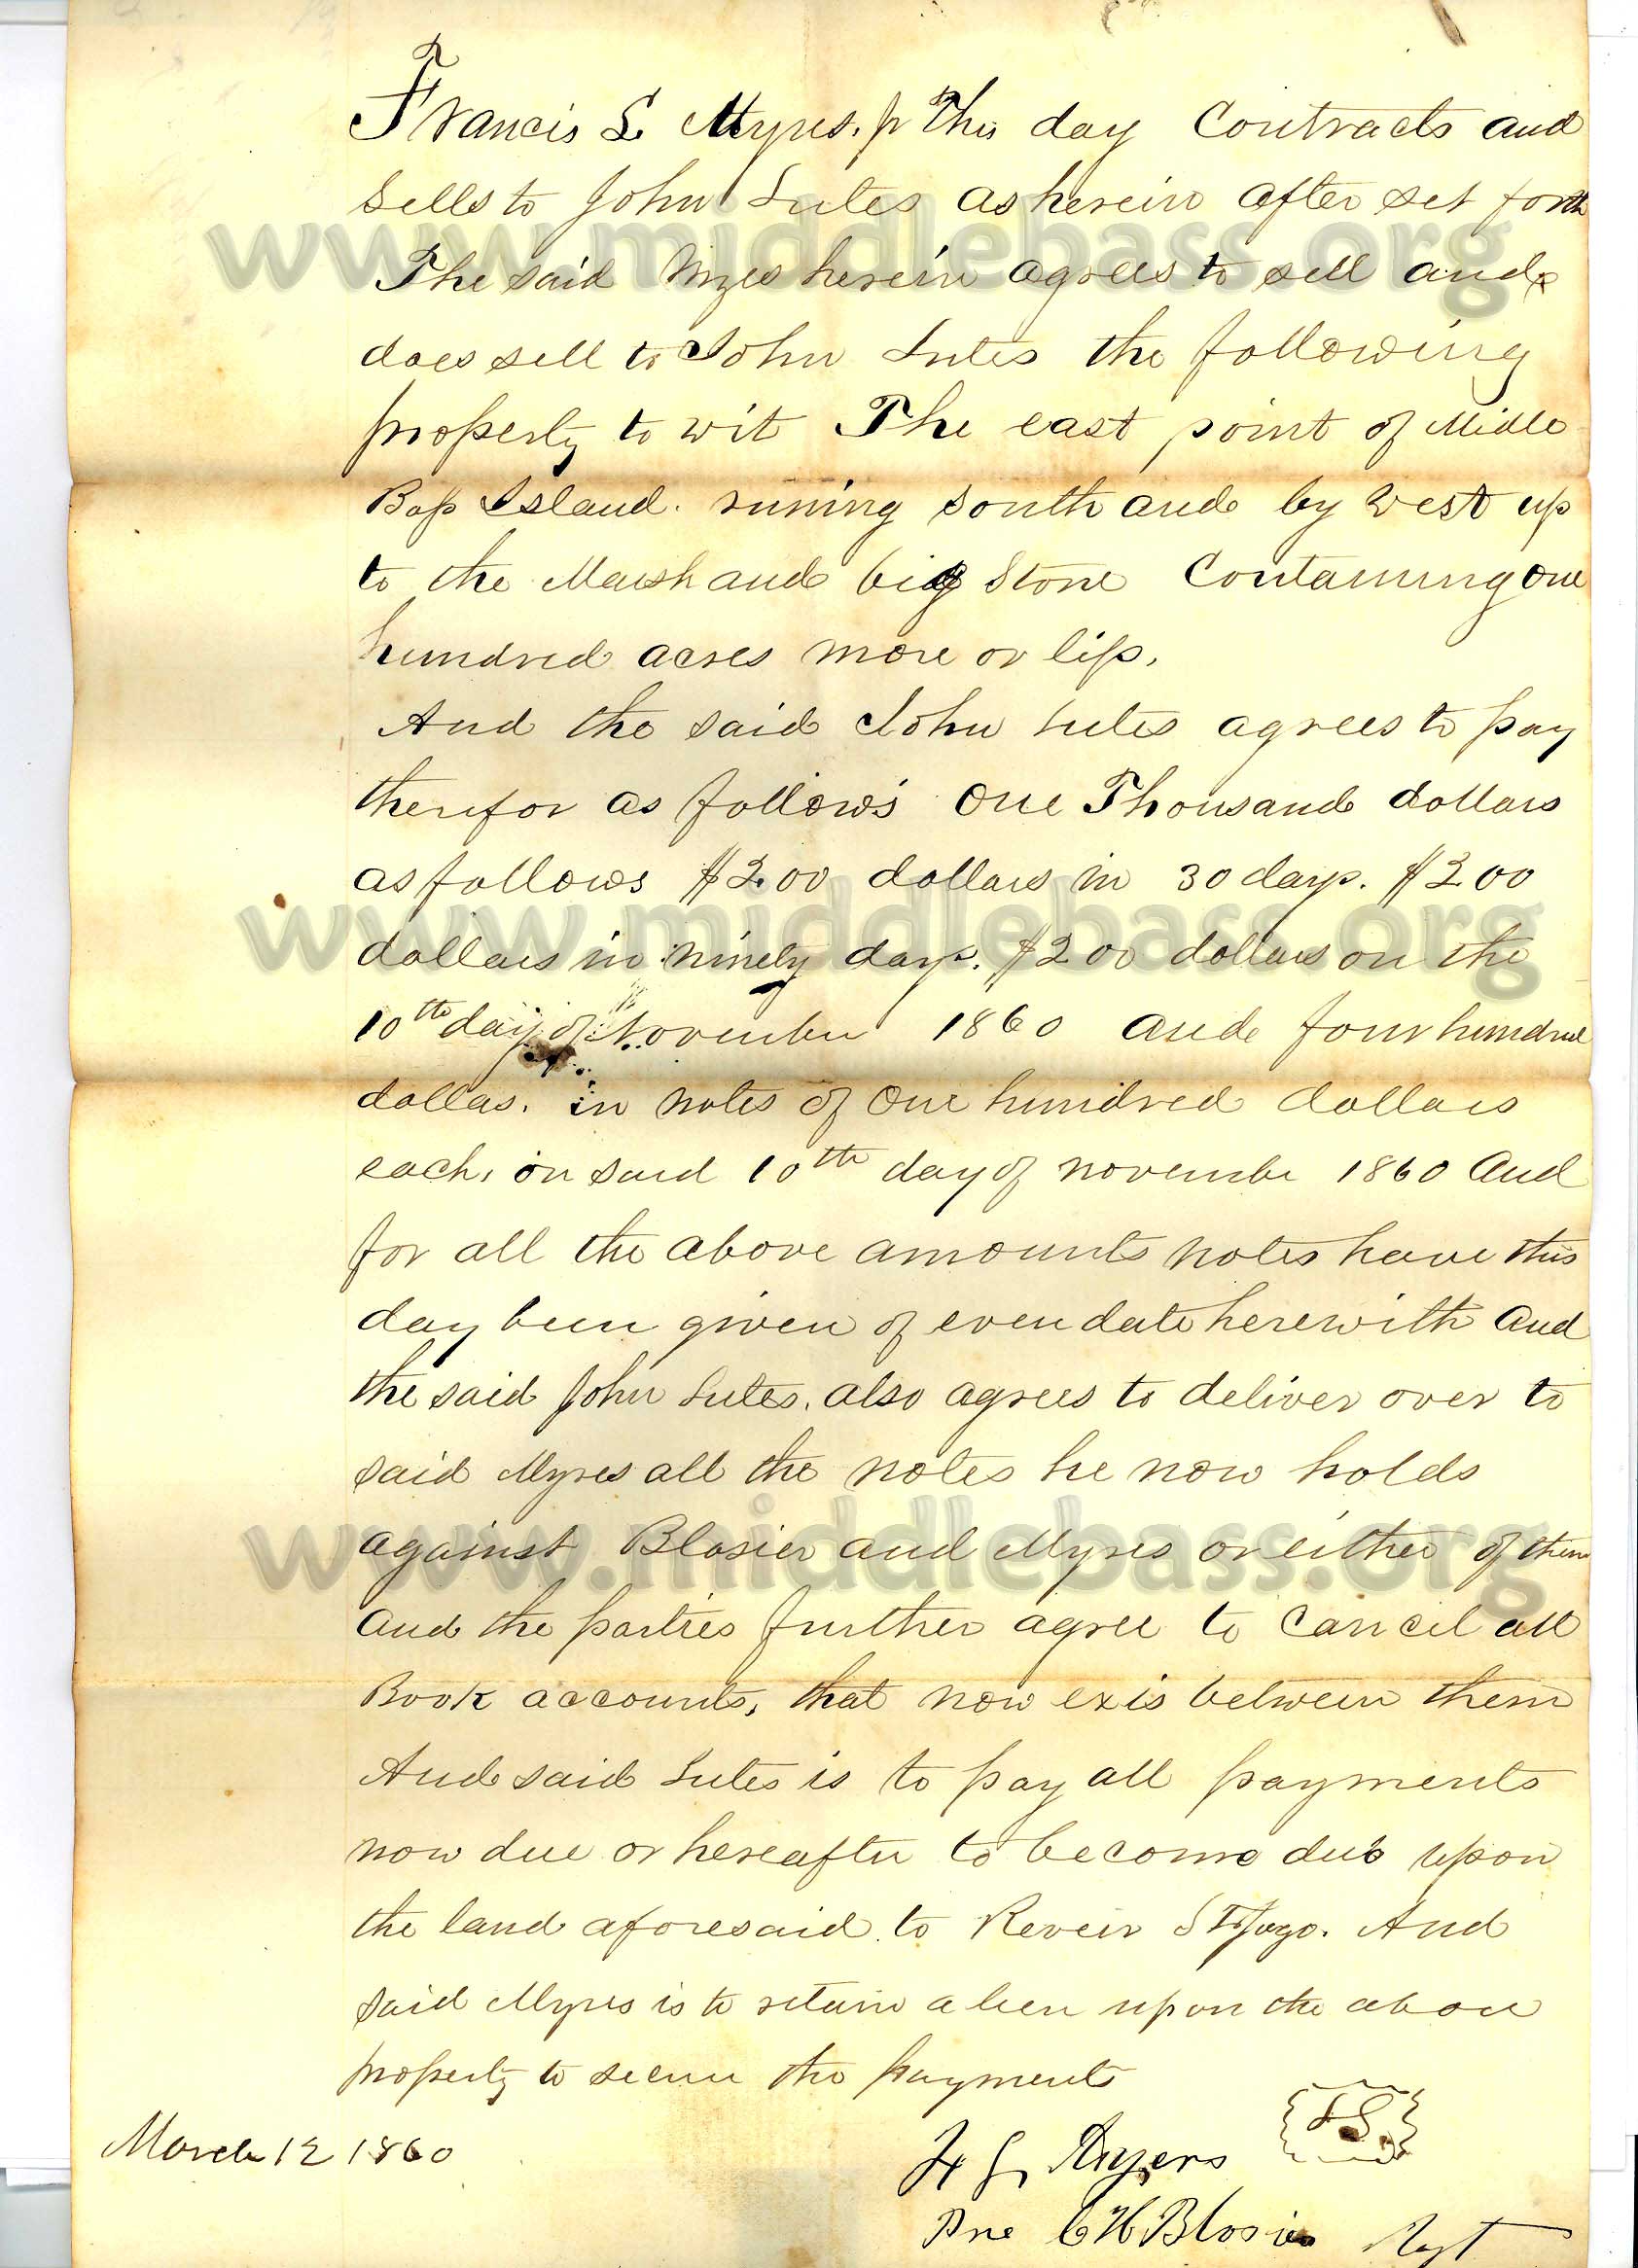 Francis S. Myres. Jr This day Contracts and
Sells to John Lutes as herein after set forth
The said Myres herein agrees to sell and
does sell to John Lutes the following
property to wit The east point of Midle
Bass Island. runing south and by West up
to the Marsh and big Stone Containing One
hundred acres more or less.
And the said John Lutes agrees to pay
therefor as follows One Thousand dollars
as follows $200 dollars in 30 days. $200
dollars in ninety days. $200 dollars on the
10th day of November 1860 and four hundred
dollas. in notes of One hundred dollars
each, on said 10th day of november 1860 And
for all the above amounts notes have this
day been given of even date herewith And
the said John Lutes. also agrees to deliver over to
said Myres all the notes he now holds
against Blosier and Myres or either of them
And the parties further agree to Cancel all
Book accounts, that now exis between them
And said Lutes is to pay all payments
now due or hereafter to become due upon
the land aforesaid to. And
said Myres is to retain a lien upon the above
property to secure the payments
March 12 1860
F S Myers LS
C H Blosier Agt
www.middlebass.org
www.middlebass.org
www.middlebass.org